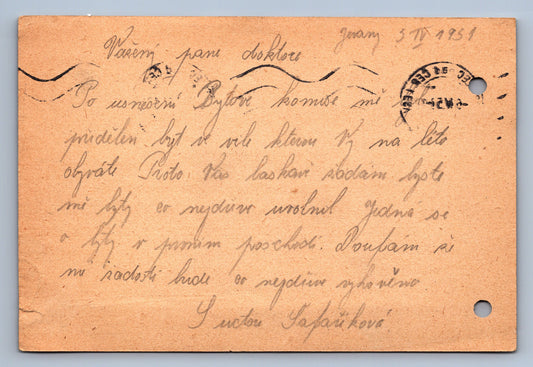 Jevany 5 IV 1951
Vážený pane doktore
Po usnešní Bytové komise mě
přidělen byt ve vile kterou Vy na léto
obyváte Proto Vás laskavě žádám byste
mě byty co nejdříve uvolnil Jedná se
o byty v prvním poschodí. Doufám že
mé žádosti bude co nejdříve vyhověno
S úctou Šafaříková